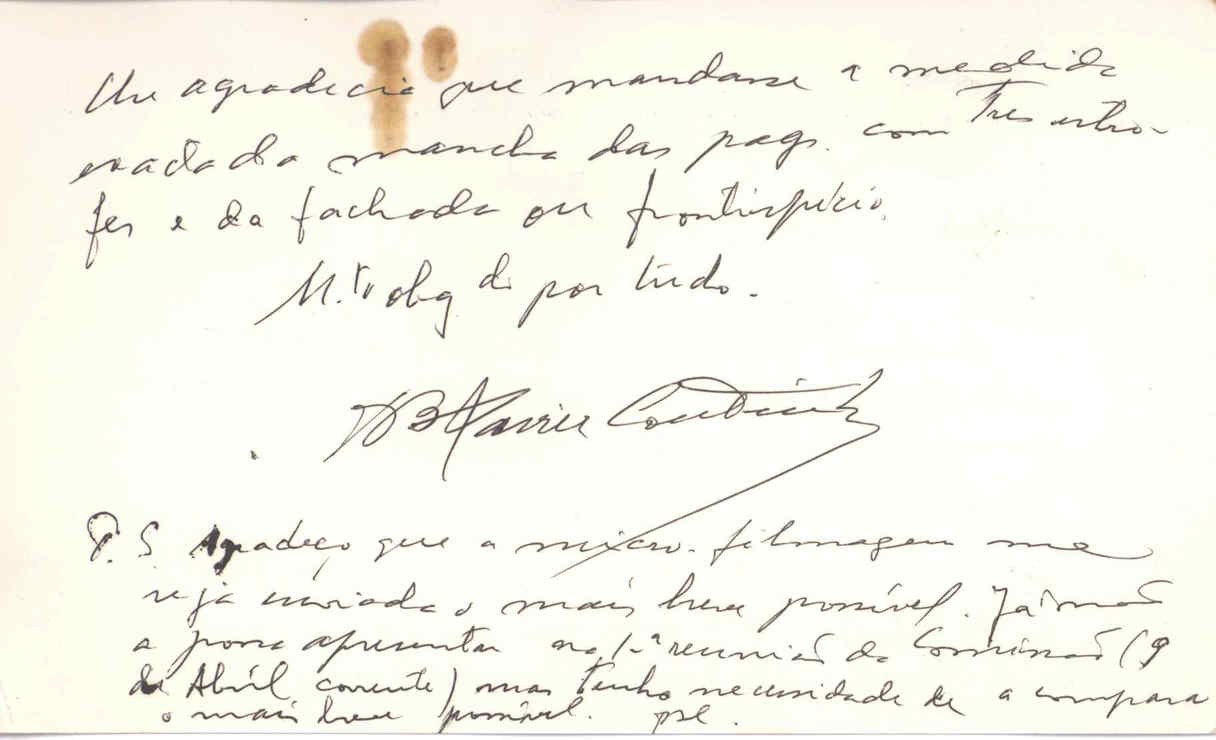 agradecia que mandasse a medida
exacta da mancha das pags. com Tres estro-
fes e da fachada ou frontispicio.
M.to obg do por tudo.
B Xavier Coutinho
P. S. Agradeço que a micro-filmagem me
seja enviada o mais breve possível. Já não
a posso apresentar na 1.ª reunião da Comissão (9
de Abril corrente) mas Tenho necessidade de a compara
o mais breve possível.